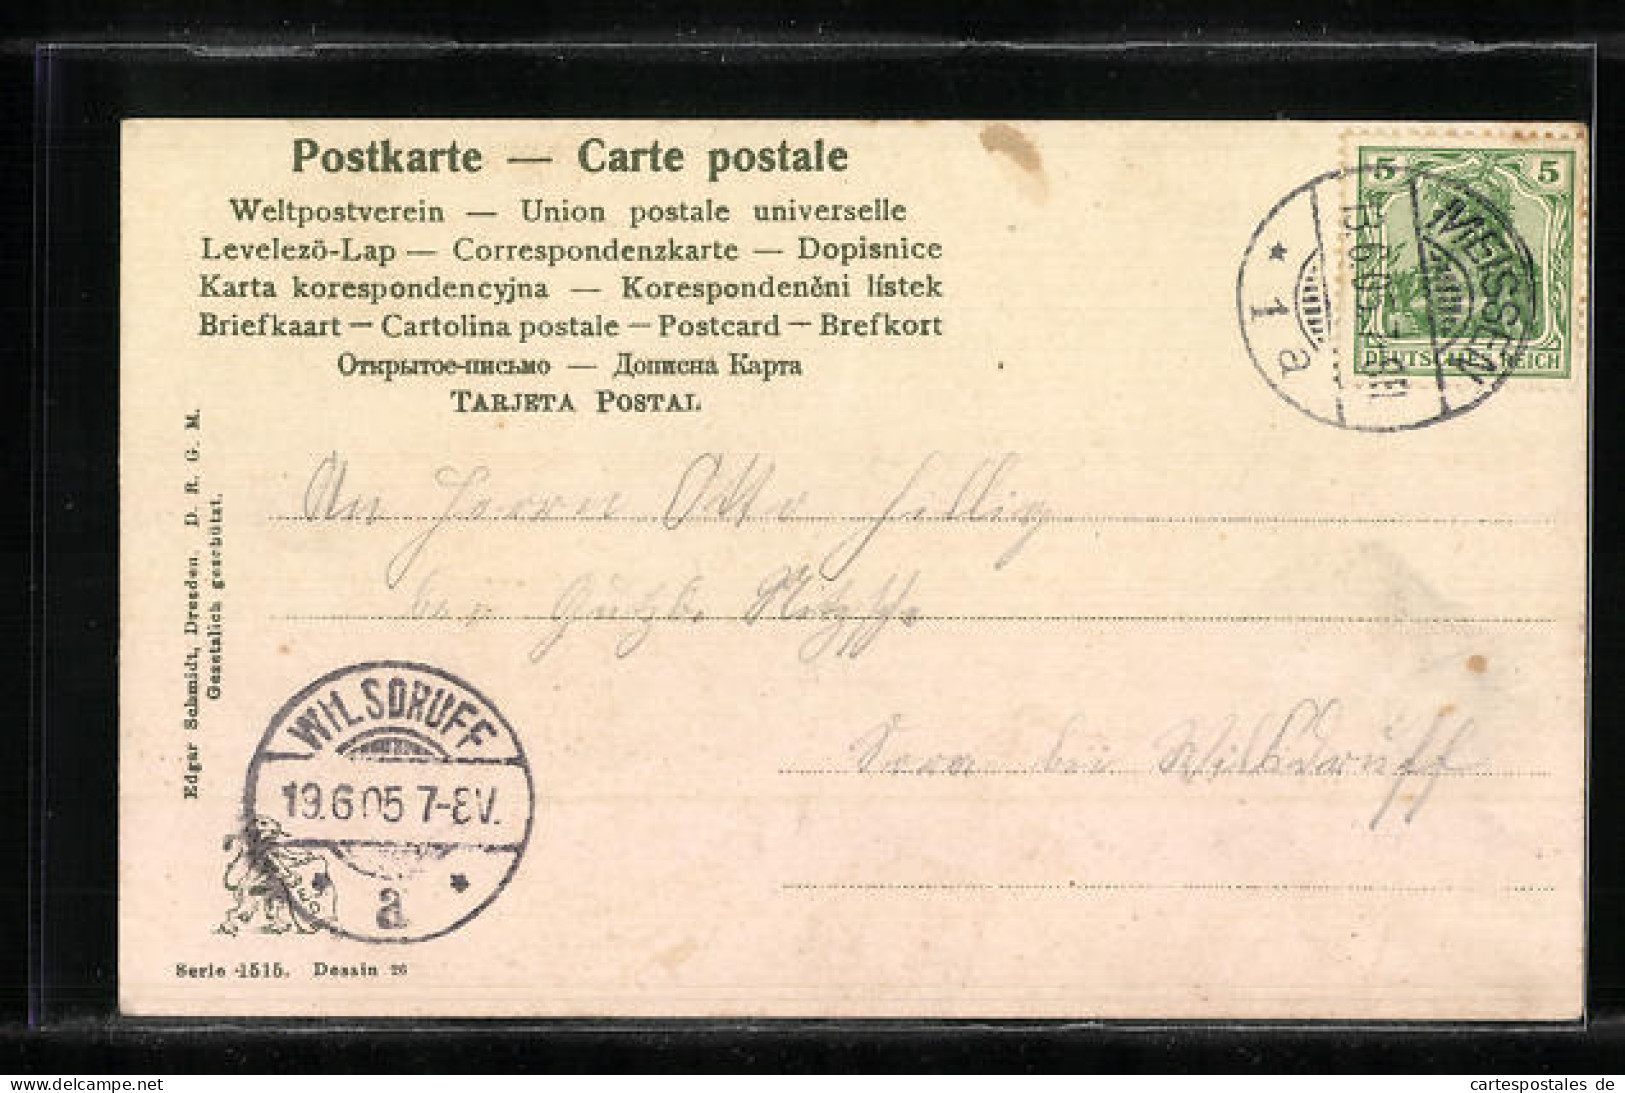 Postkarte — Carte postale
Weltpostverein — Union postale universelle
Levelező-Lap — Correspondenzkarte — Dopisnice
Karta korespondencyjna — Korespondenčni lístek
Briefkaart — Cartolina postale — Postcard — Brefkort
Открытое-письмо — Дописна Карта
TARJETA POSTAL
5 5
DEUTSCHES REICH
MEISSEN
1 a
Edgar Schmidt, Dresden. D. R. G. M.
Gesetzlich geschützt.
An Herrn Otto
bei
Sora bei Wilsdruff
WILSDRUFF
19.6.05 7-8V.
a
Serie 1515. Dessin 26
delcampe.net
cartespostales de